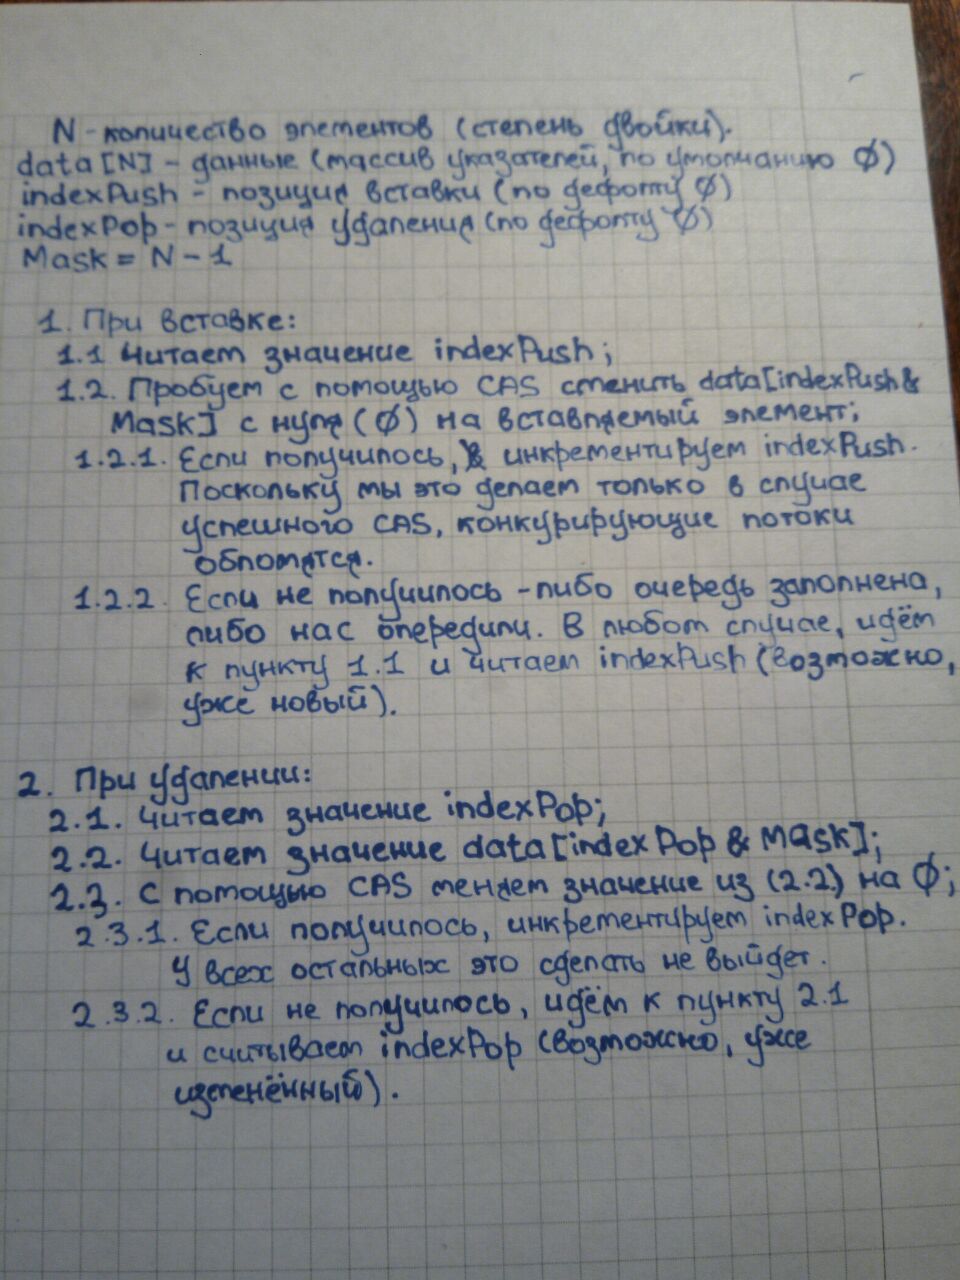 N - количество элементов (степень двойки).
data[N] - данные (массив указателей, по умолчанию 0)
indexPush - позиция вставки (по дефолту 0)
indexPop - позиция удаления (по дефолту 0)
Mask = N - 1
1. При вставке:
1.1 Читаем значение indexPush;
1.2. Пробуем с помощью CAS сменить data[indexPush &
Mask] с нуля (0) на вставляемый элемент;
1.2.1. Если получилось, инкрементируем indexPush.
Поскольку мы это делаем только в случае
успешного CAS, конкурирующие потоки
обломятся.
1.2.2. Если не получилось - либо очередь заполнена,
либо нас опередили. В любом случае, идём
к пункту 1.1 и читаем indexPush (возможно,
уже новый).
2. При удалении:
2.1. Читаем значение indexPop;
2.2. Читаем значение data[indexPop & Mask];
2.3. С помощью CAS меняем значение из (2.2.) на 0;
2.3.1. Если получилось, инкрементируем indexPop.
У всех остальных это сделать не выйдет.
2.3.2. Если не получилось, идём к пункту 2.1
и считываем indexPop (возможно, уже
изменённый).